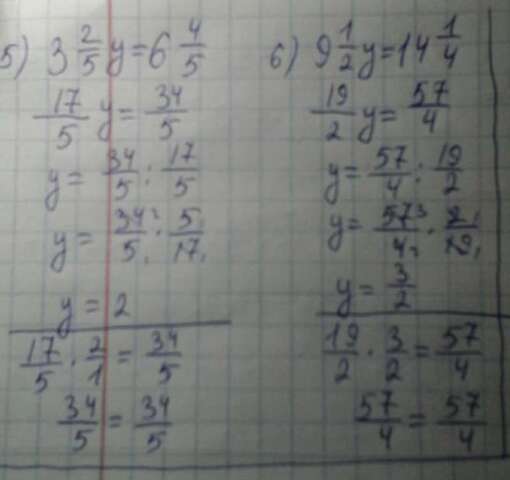 5) 3 2/5 y = 6 4/5
17/5 y = 34/5
y = 34/5 : 17/5
y = 34²/5₁ · 5₁/17₁
y = 2
17/5 · 2/1 = 34/5
34/5 = 34/5
6) 9 1/2 y = 14 1/4
19/2 y = 57/4
y = 57/4 : 19/2
y = 57³/4₂ · 2₁/19₁
y = 3/2
19/2 · 3/2 = 57/4
57/4 = 57/4